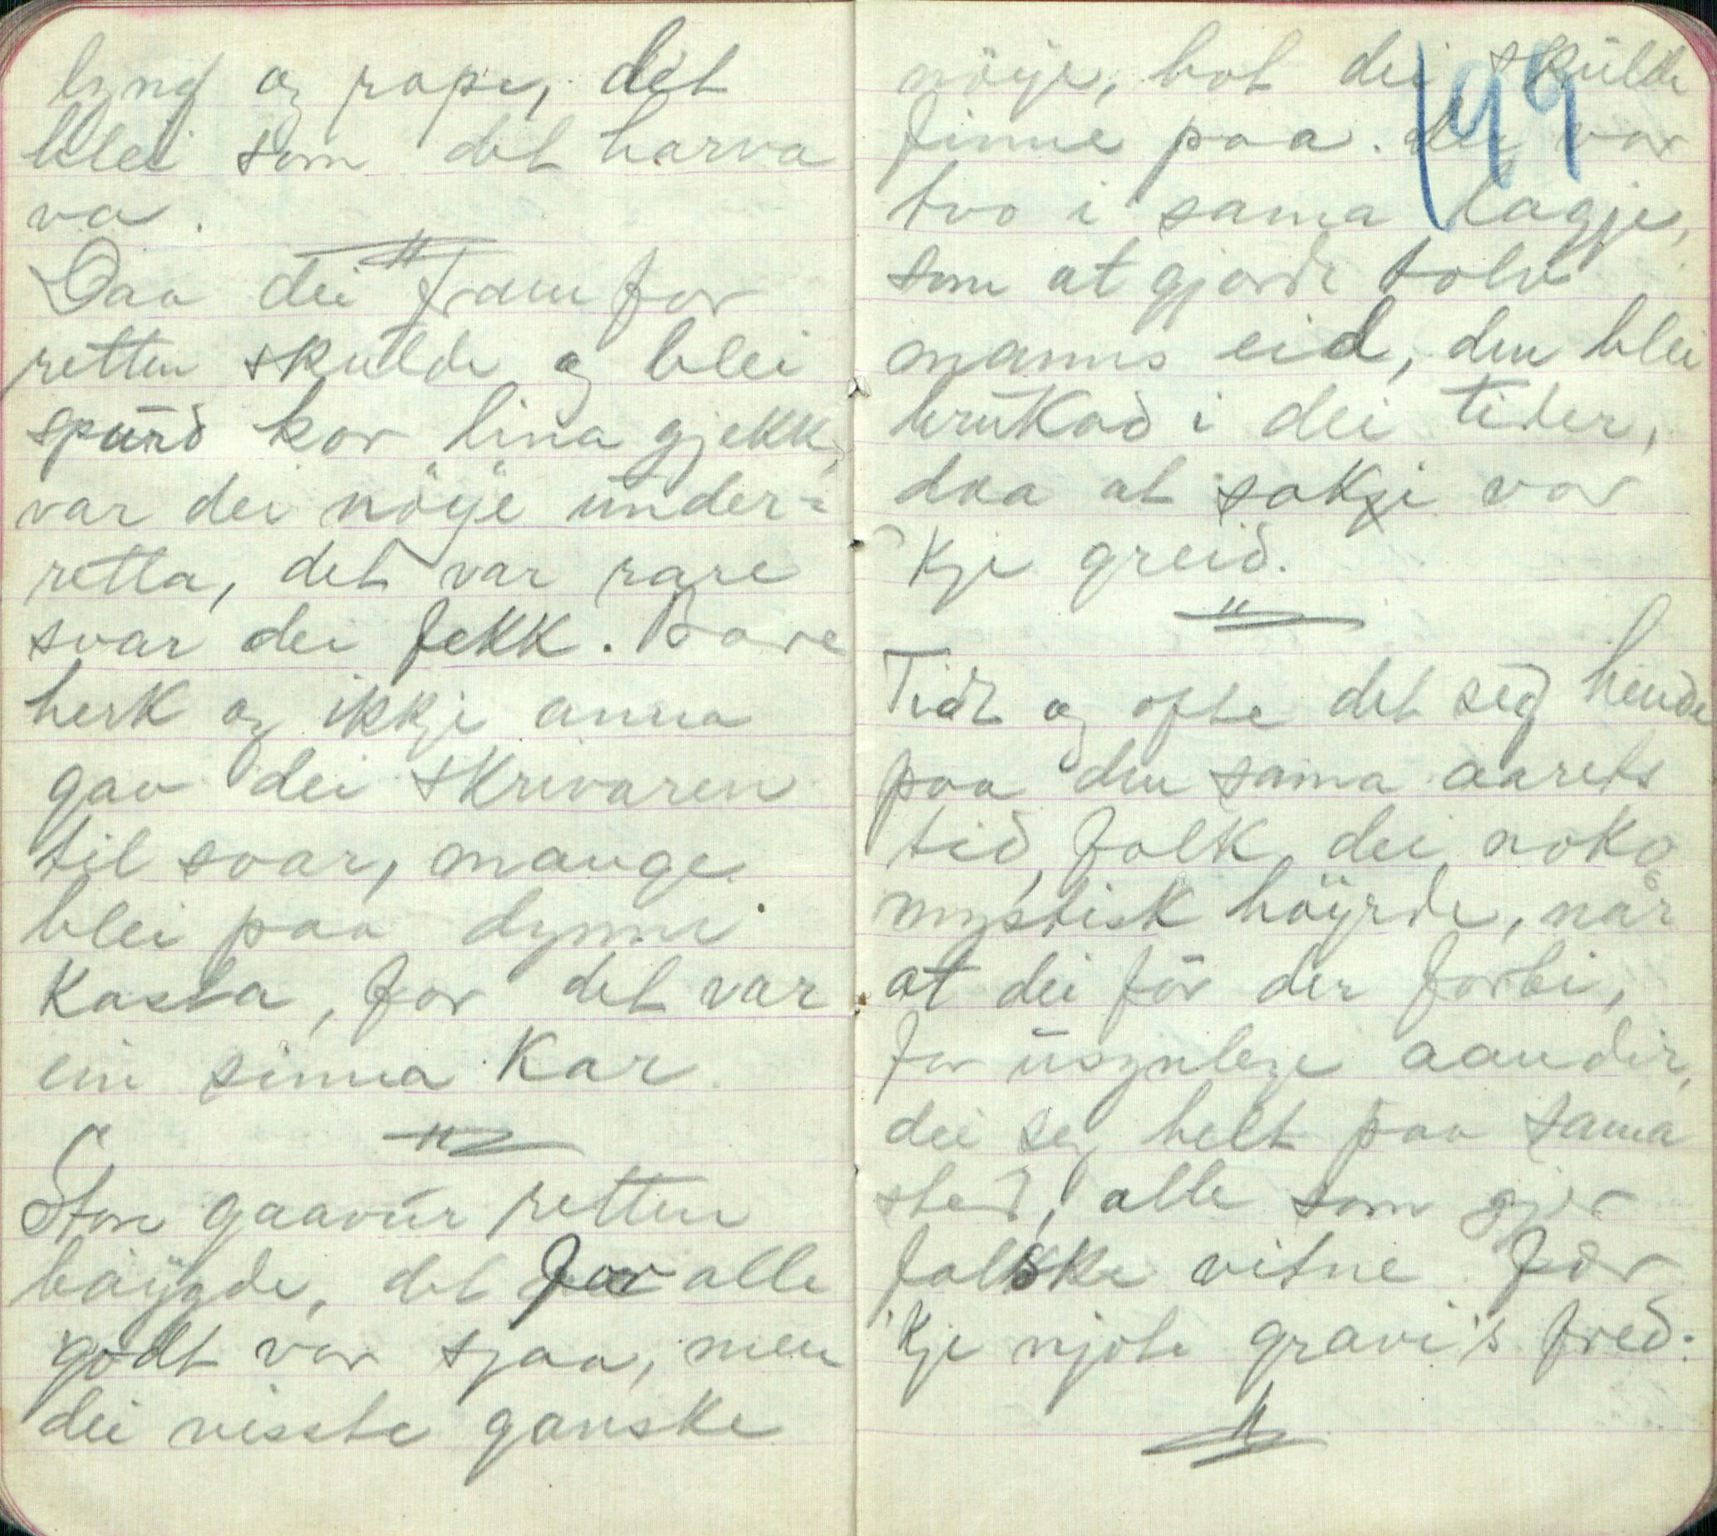 lyng og rape, det
blei som det harva
va.
Daa dei fram for
retten skulde og blei
spurd kor lina gjekk,
var dei nöye under=
retta, det var rare
svar dei fekk. Bare
herk og ikkje anna
gav dei skrivaren
til svar, mange
blei paa dynni
kasta, for det var
ein sinna kar.
Store gaavur retten
böygde, det for alle
godt var sjaa, men
dei visste ganske
199
nöye, hot dei skulde
finne paa. dei var
tvo i sama lagje,
som at gjorde tolv
manns eid, den blei
brukad i dei tider,
daa at sakji var
'kje greid.
Tidt og ofte det seg hende
paa den sama aarets
tid, folk dei noko
mystisk höyrde, når
at dei för der forbi,
for usynlege aandir,
dei seg helt paa sama
sted, alle som gjer
falske vitne fær
'kje njote gravi's fred.